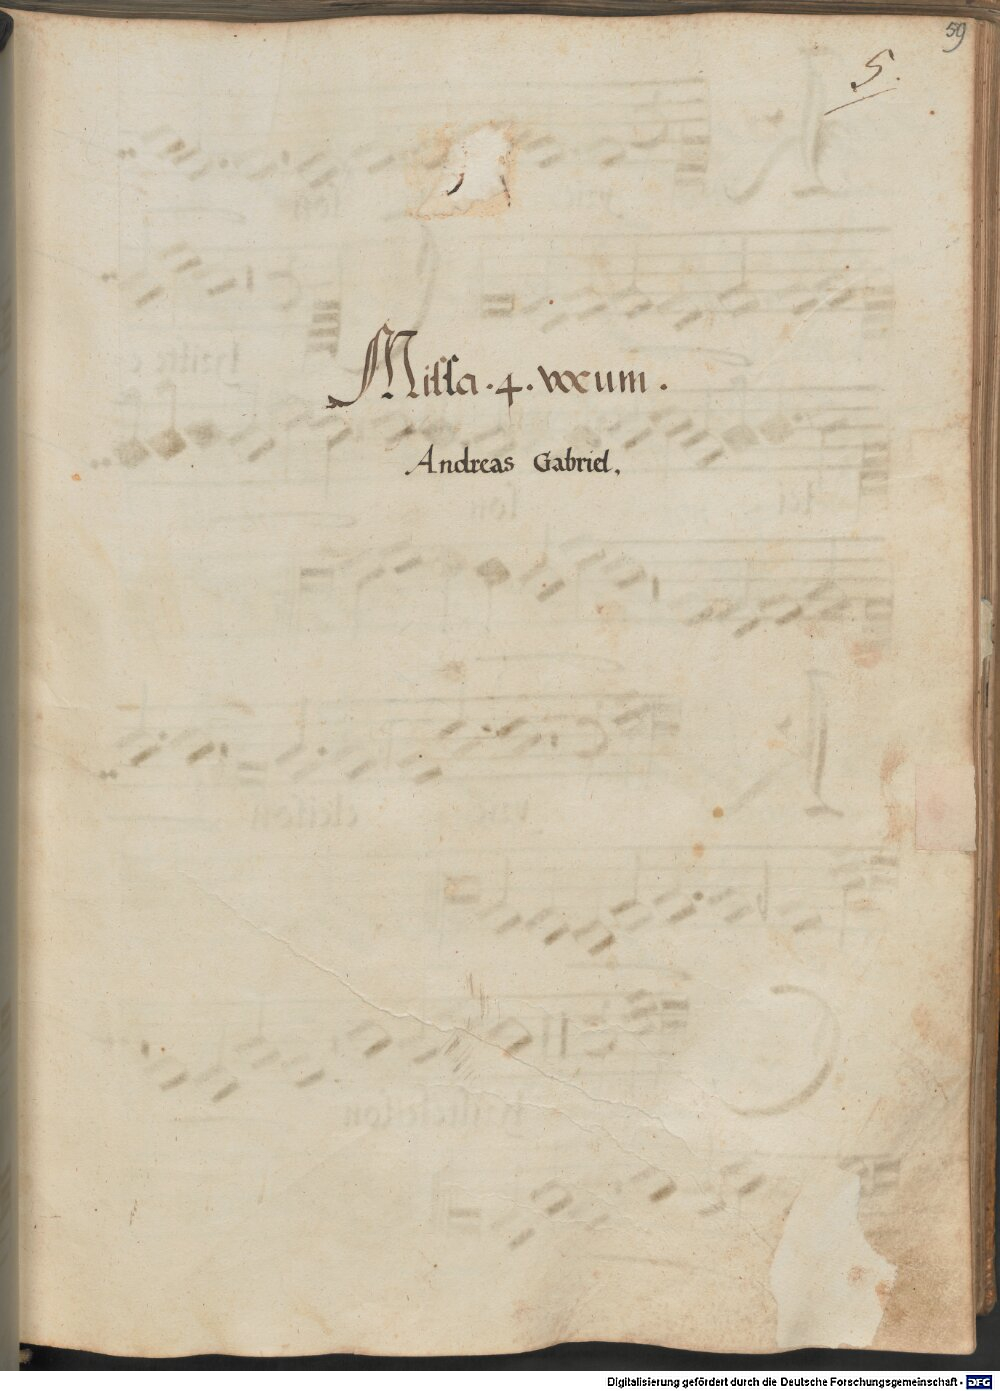 59
5.
Missa . 4 . vocum .
Andreas Gabriel,
Digitalisierung gefördert durch die Deutsche Forschungsgemeinschaft - DFG